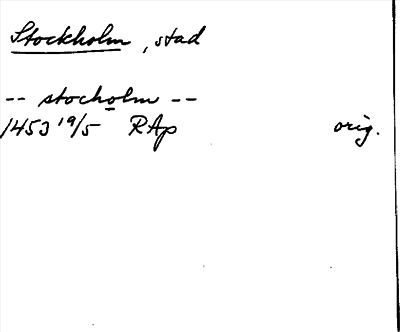 Stockholm, stad
-- stocholm --
1453 19/5 RAp orig.